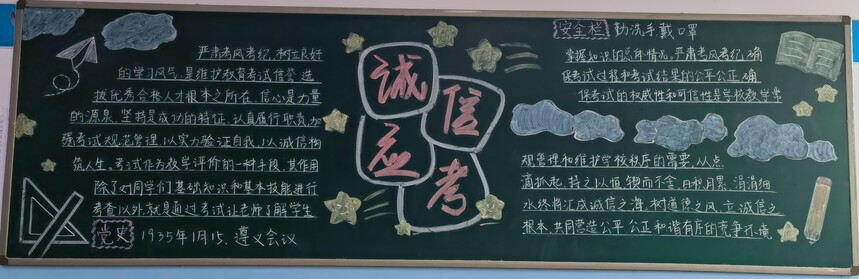 严肃考风考纪,树立良好
的学习风气,是维护教育考试信誉,选
拔优秀合格人才根本之所在,信心是力量
的源泉,坚持是成功的特征,认真履行职责,加
强考试规范管理,以实力验证自我,以诚信构
筑人生。考试作为教学评价的一种手段,其作用
除了对同学们基础知识和基本技能进行
考查以外就是通过考试让老师了解学生
党史 1935年1月15,遵义会议
诚信
应考
安全栏 勤洗手戴口罩
掌握知识的总体情况。严肃考风考纪,确
保考试过程和考试结果的公平公正,确
保考试的权威性和可信性是学校教学常
规管理和维护学校秩序的需要,从点
滴抓起,持之以恒,锲而不舍,日积月累,涓涓细
水终将汇成诚信之海,树道德之风,立诚信之
根本,共同营造公平公正和谐有序的竞争环境